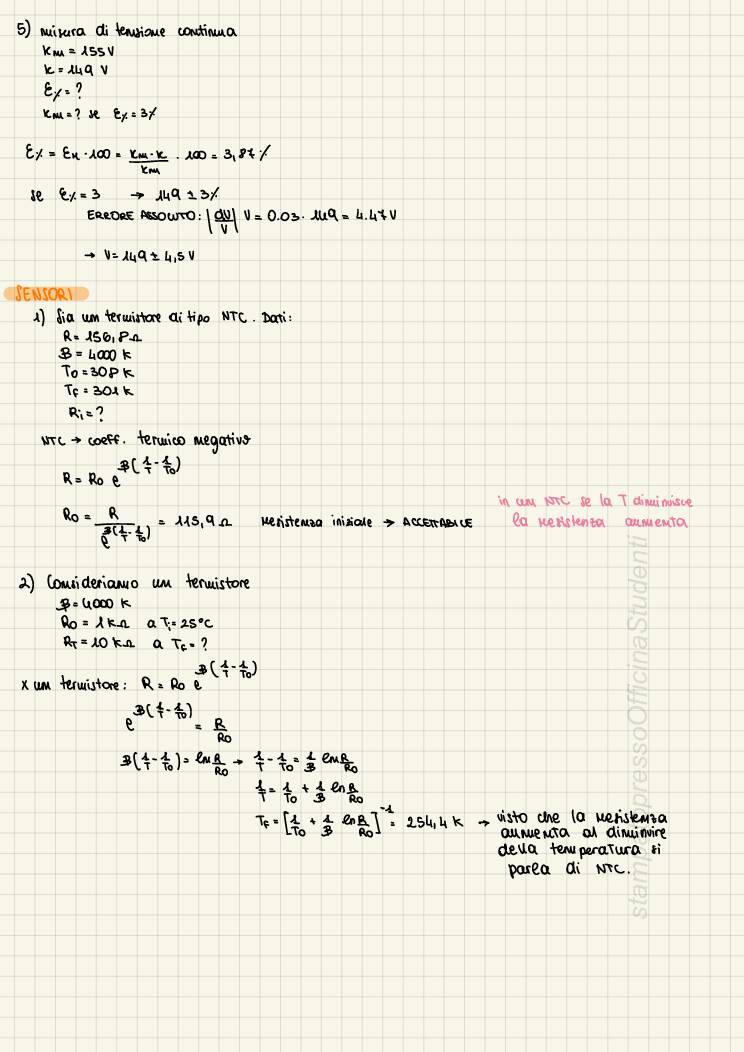 5) misura di tensione continua
Km = 155 V
K = 149 V
ε% = ?
Km = ? se ε% = 3%
ε% = εr · 100 = (Km - K)/Km · 100 = 3,87%
se ε% = 3 → 149 ± 3%
ERRORE ASSOLUTO: |dV/V| V = 0.03 · 149 = 4.47 V
→ V = 149 ± 4,5 V
SENSORI
1) Sia un termistore di tipo NTC. Dati:
R = 156,8 Ω
B = 4000 K
T0 = 308 K
TF = 301 K
Ri = ?
NTC → coeff. termico negativo
R = R0 e^B(1/T - 1/T0)
R0 = R/e^B(1/T - 1/T0) = 115,9 Ω resistenza iniziale → ACCETTABILE
in un NTC se la T diminuisce
la resistenza aumenta
2) Consideriamo un termistore
B = 4000 K
R0 = 1 kΩ a Ti = 25°C
RT = 10 kΩ a TF = ?
x un termistore: R = R0 e^B(1/T - 1/T0)
e^B(1/T - 1/T0) = R/R0
B(1/T - 1/T0) = ln R/R0 → 1/T - 1/T0 = 1/B ln R/R0
1/T = 1/T0 + 1/B ln R/R0
TF = [1/T0 + 1/B ln R/R0]^-1 = 254,4 K → visto che la resistenza
aumenta al diminuire
della temperatura si
parla di NTC.